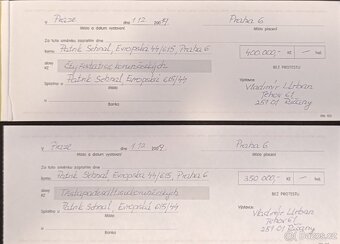 V Praze dne 1.12. 2009 Praha 6
Místo a datum vystavení Místo placení
Za tuto směnku zaplatím dne
komu Patrik Sehnal, Evropská 44/615, Praha 6
slovy Kč Čtyřistatisíc korun českých
400.000,- Kč
BEZ PROTESTU
Splatno u Patrik Sehnal, Evropská 615/44
Místo
Banka
Výstavce: Vladimír Urban
Tehov 61
251 01 Říčany
V Praze dne 1.12. 2009 Praha 6
Místo a datum vystavení Místo placení
Za tuto směnku zaplatím dne
komu Patrik Sehnal, Evropská 44/615, Praha 6
slovy Kč Třistapadesáttisíc korun českých
350.000,- Kč
BEZ PROTESTU
Splatno u Patrik Sehnal, Evropská 615/44
Místo
Banka
Výstavce: Vladimír Urban
Tehov 61
251 01 Říčany